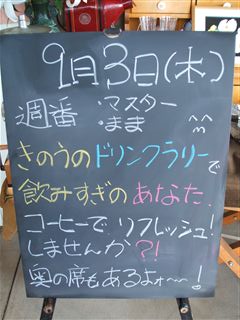 9月3日(木)
週番 ・マスター
・まま ^^
きのうのドリンクラリーで
飲みすぎの あなた、
コーヒーで リフレッシュ!
しませんか?!
奥の席もあるよォ〜〜!